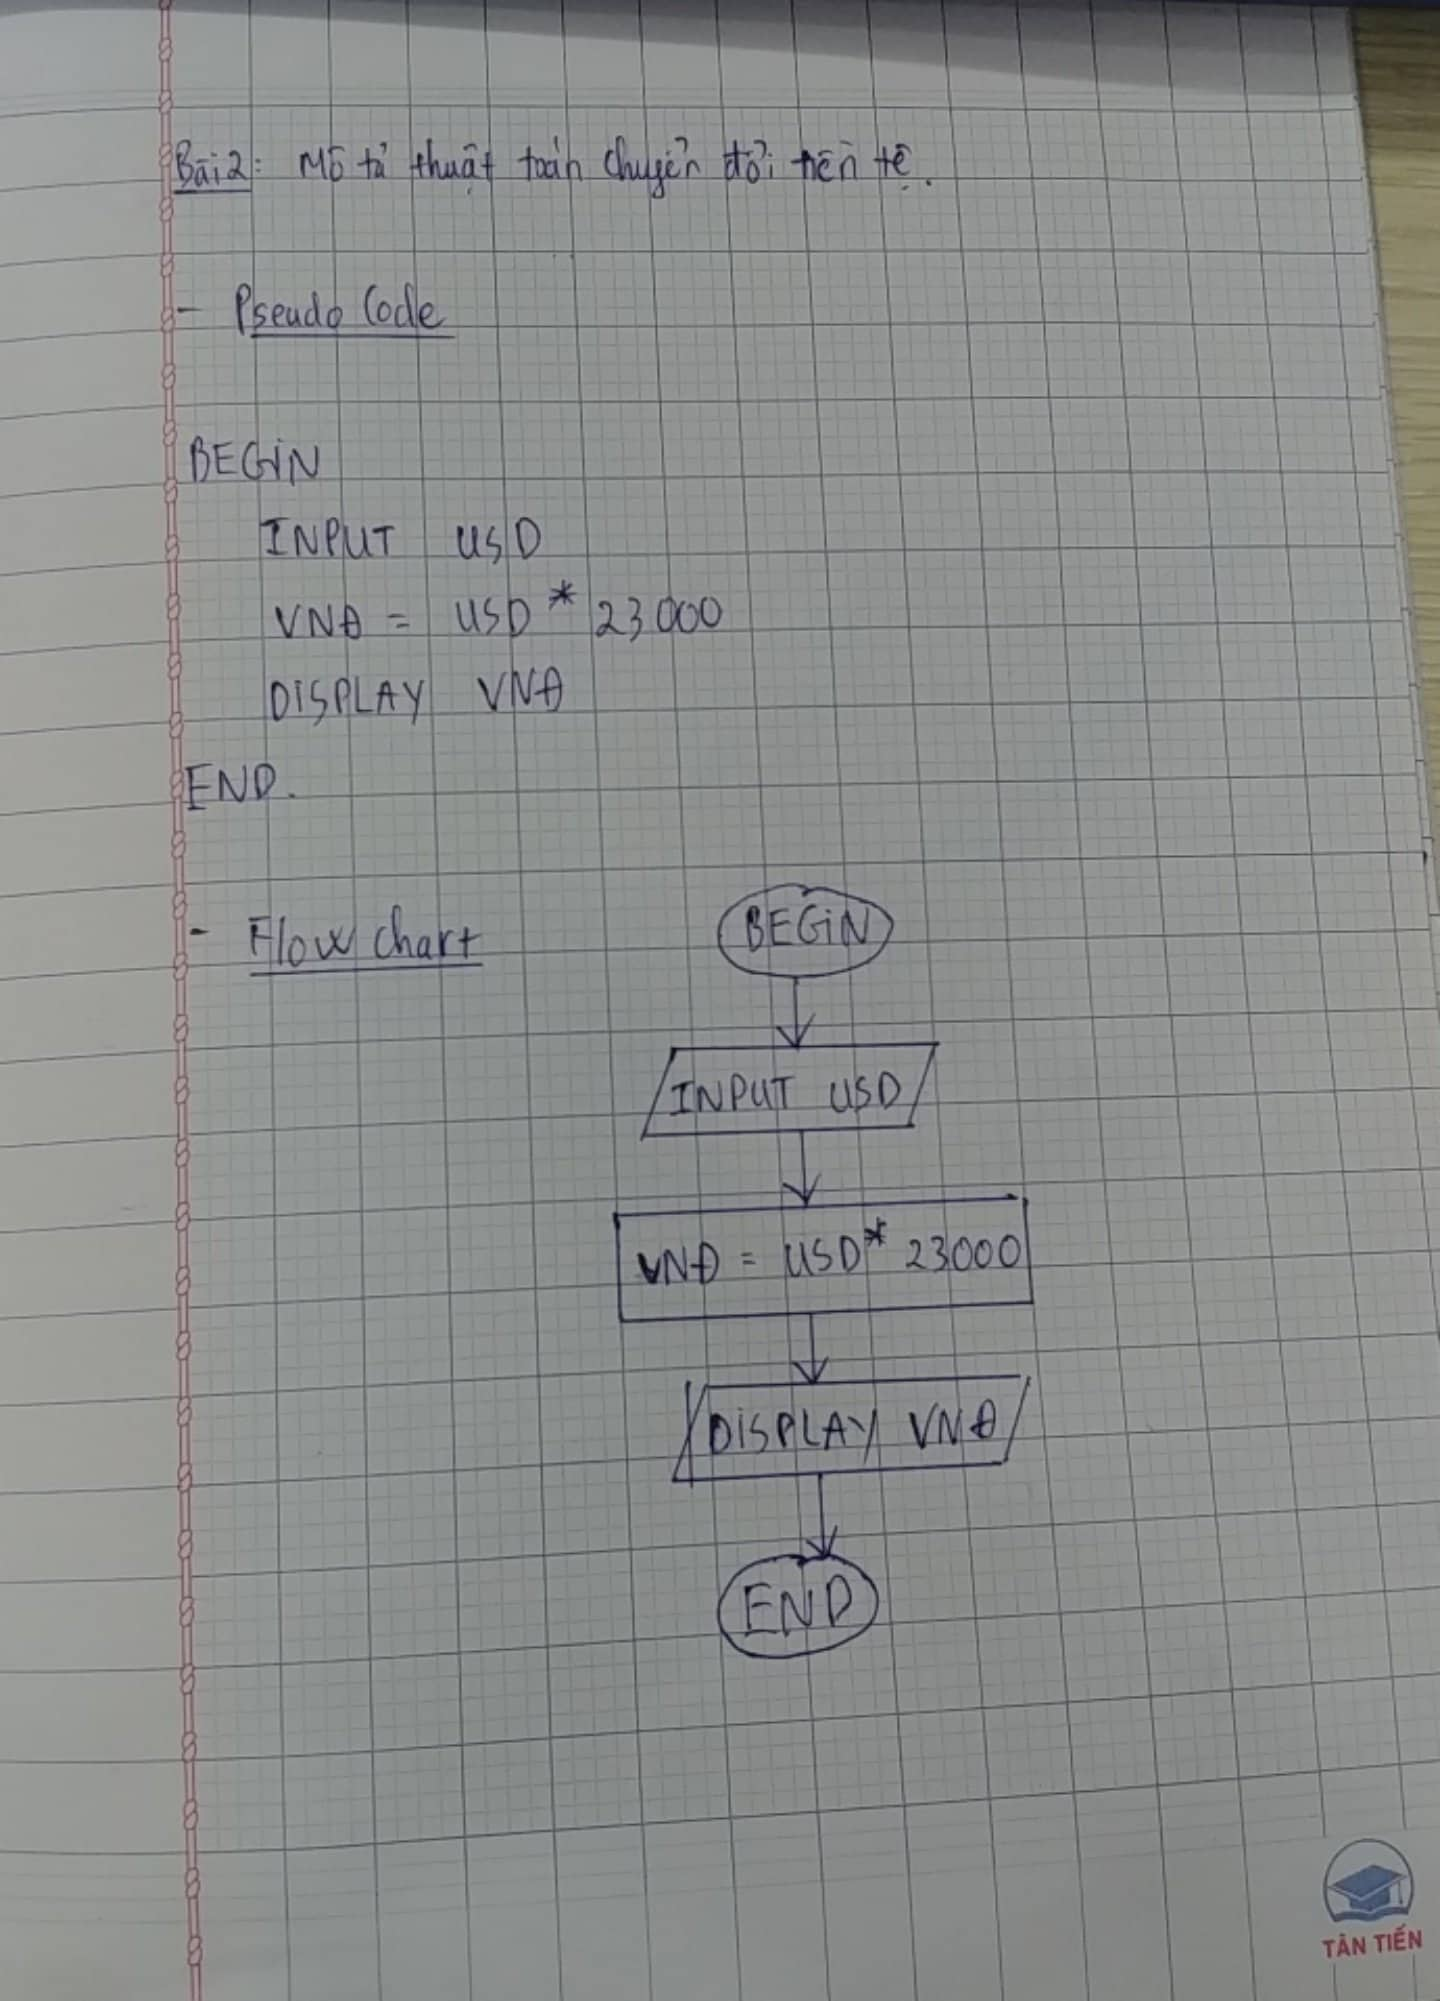 Bài 2: Mô tả thuật toán chuyển đổi tiền tệ.
- Pseudo Code
BEGIN
INPUT USD
VNĐ = USD * 23000
DISPLAY VNĐ
END.
- Flow chart
BEGIN
INPUT USD
VNĐ = USD * 23000
DISPLAY VNĐ
END
TÂN TIẾN